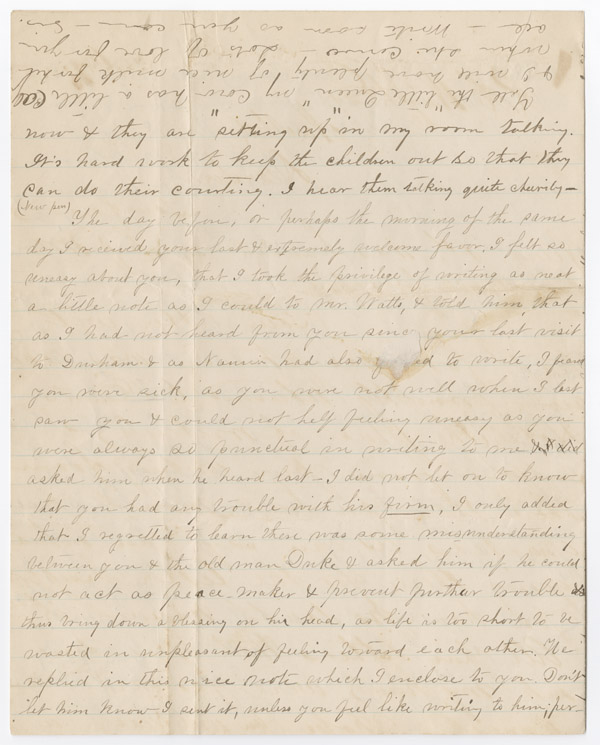 now & they are "sitting up" in my room talking.
It's hard work to keep the children out so that they
can do their courting. I hear them talking quite cheerily—
(New pen)
The day before, or perhaps the morning of the same
day I received your last & extremely welcome favor. I felt so
uneasy about you, that I took the privilege of writing as neat
a little note as I could to Mr. Watts, & told him, that
as I had not heard from you since your last visit
to Durham & as Nannie had also to write, I feared
you were sick, as you were not well when I last
saw you & could not help feeling uneasy as you
were always so punctual in writing to me
asked him when he heard last— I did not let on to know
that you had any trouble with his firm, I only added
that I regretted to learn there was some misunderstanding
between you & the old man Duke & asked him if he could
not act as peace-maker & prevent further trouble &
thus bring down a blessing on his head, as life is too short to be
wasted in unpleasant of feeling toward each other. He
replied in this nice note which I enclose to you. Don't
let him know I sent it, unless you feel like writing to him, per-
Tell the "little Queen" my cow has a little calf
& I will have plenty of nice milk for her
when she comes— Lots of love for you
all— Write soon as you can—